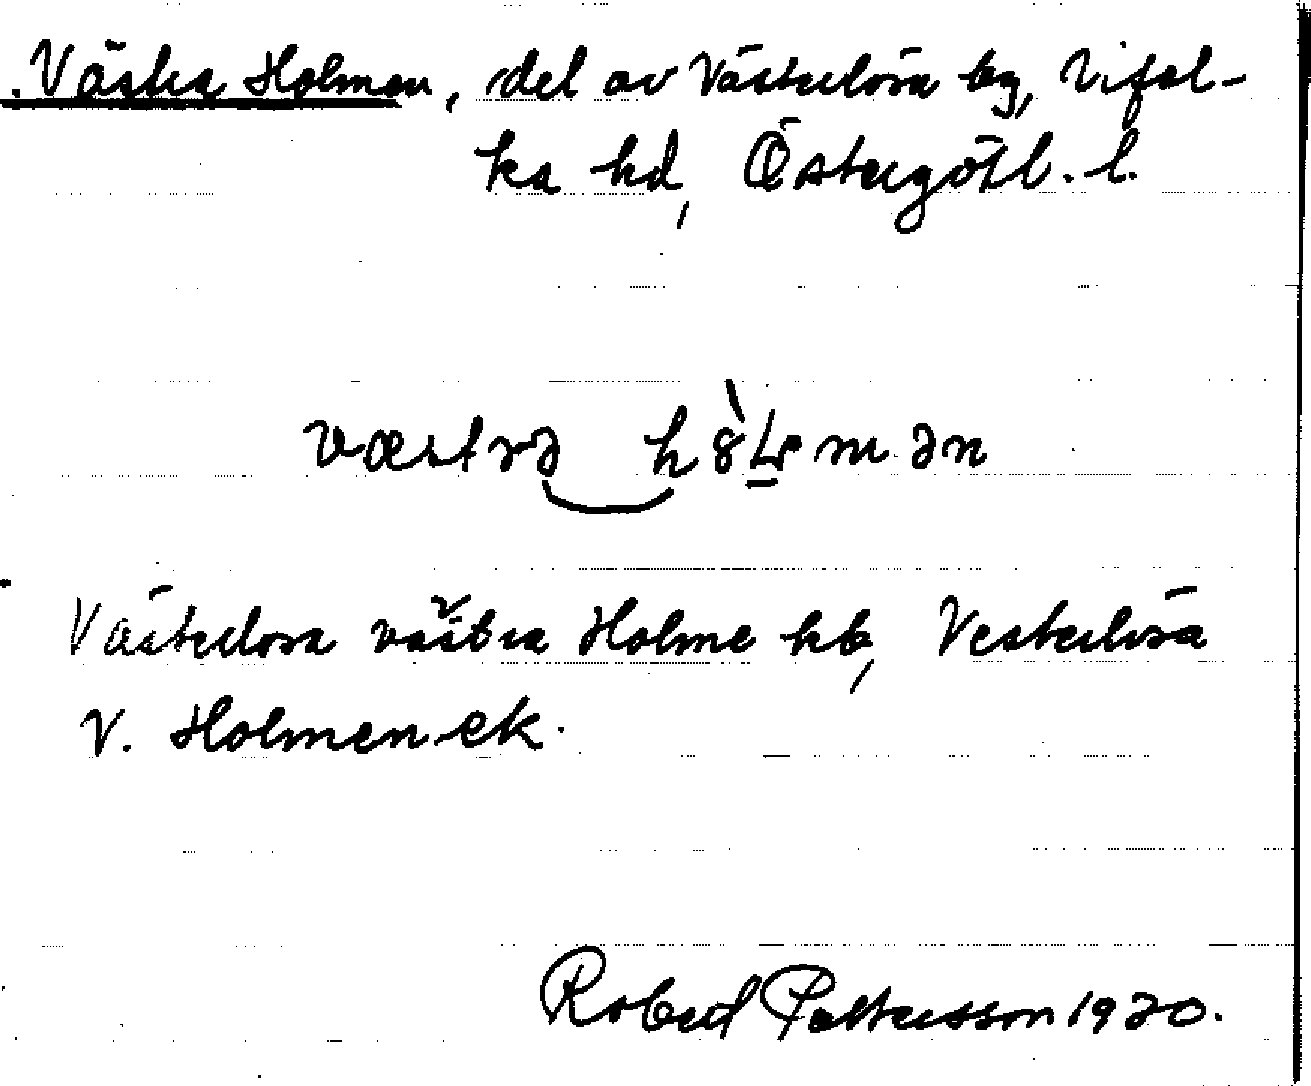 Västra Holmen, del av Västerlösa by, Vifol-
ka hd, Östergötl. l.
væstrə hòļmən
Västerlösa västra Holme hb, Vesterlösa
V. Holmen ek.
Robert Pettersson 1920.